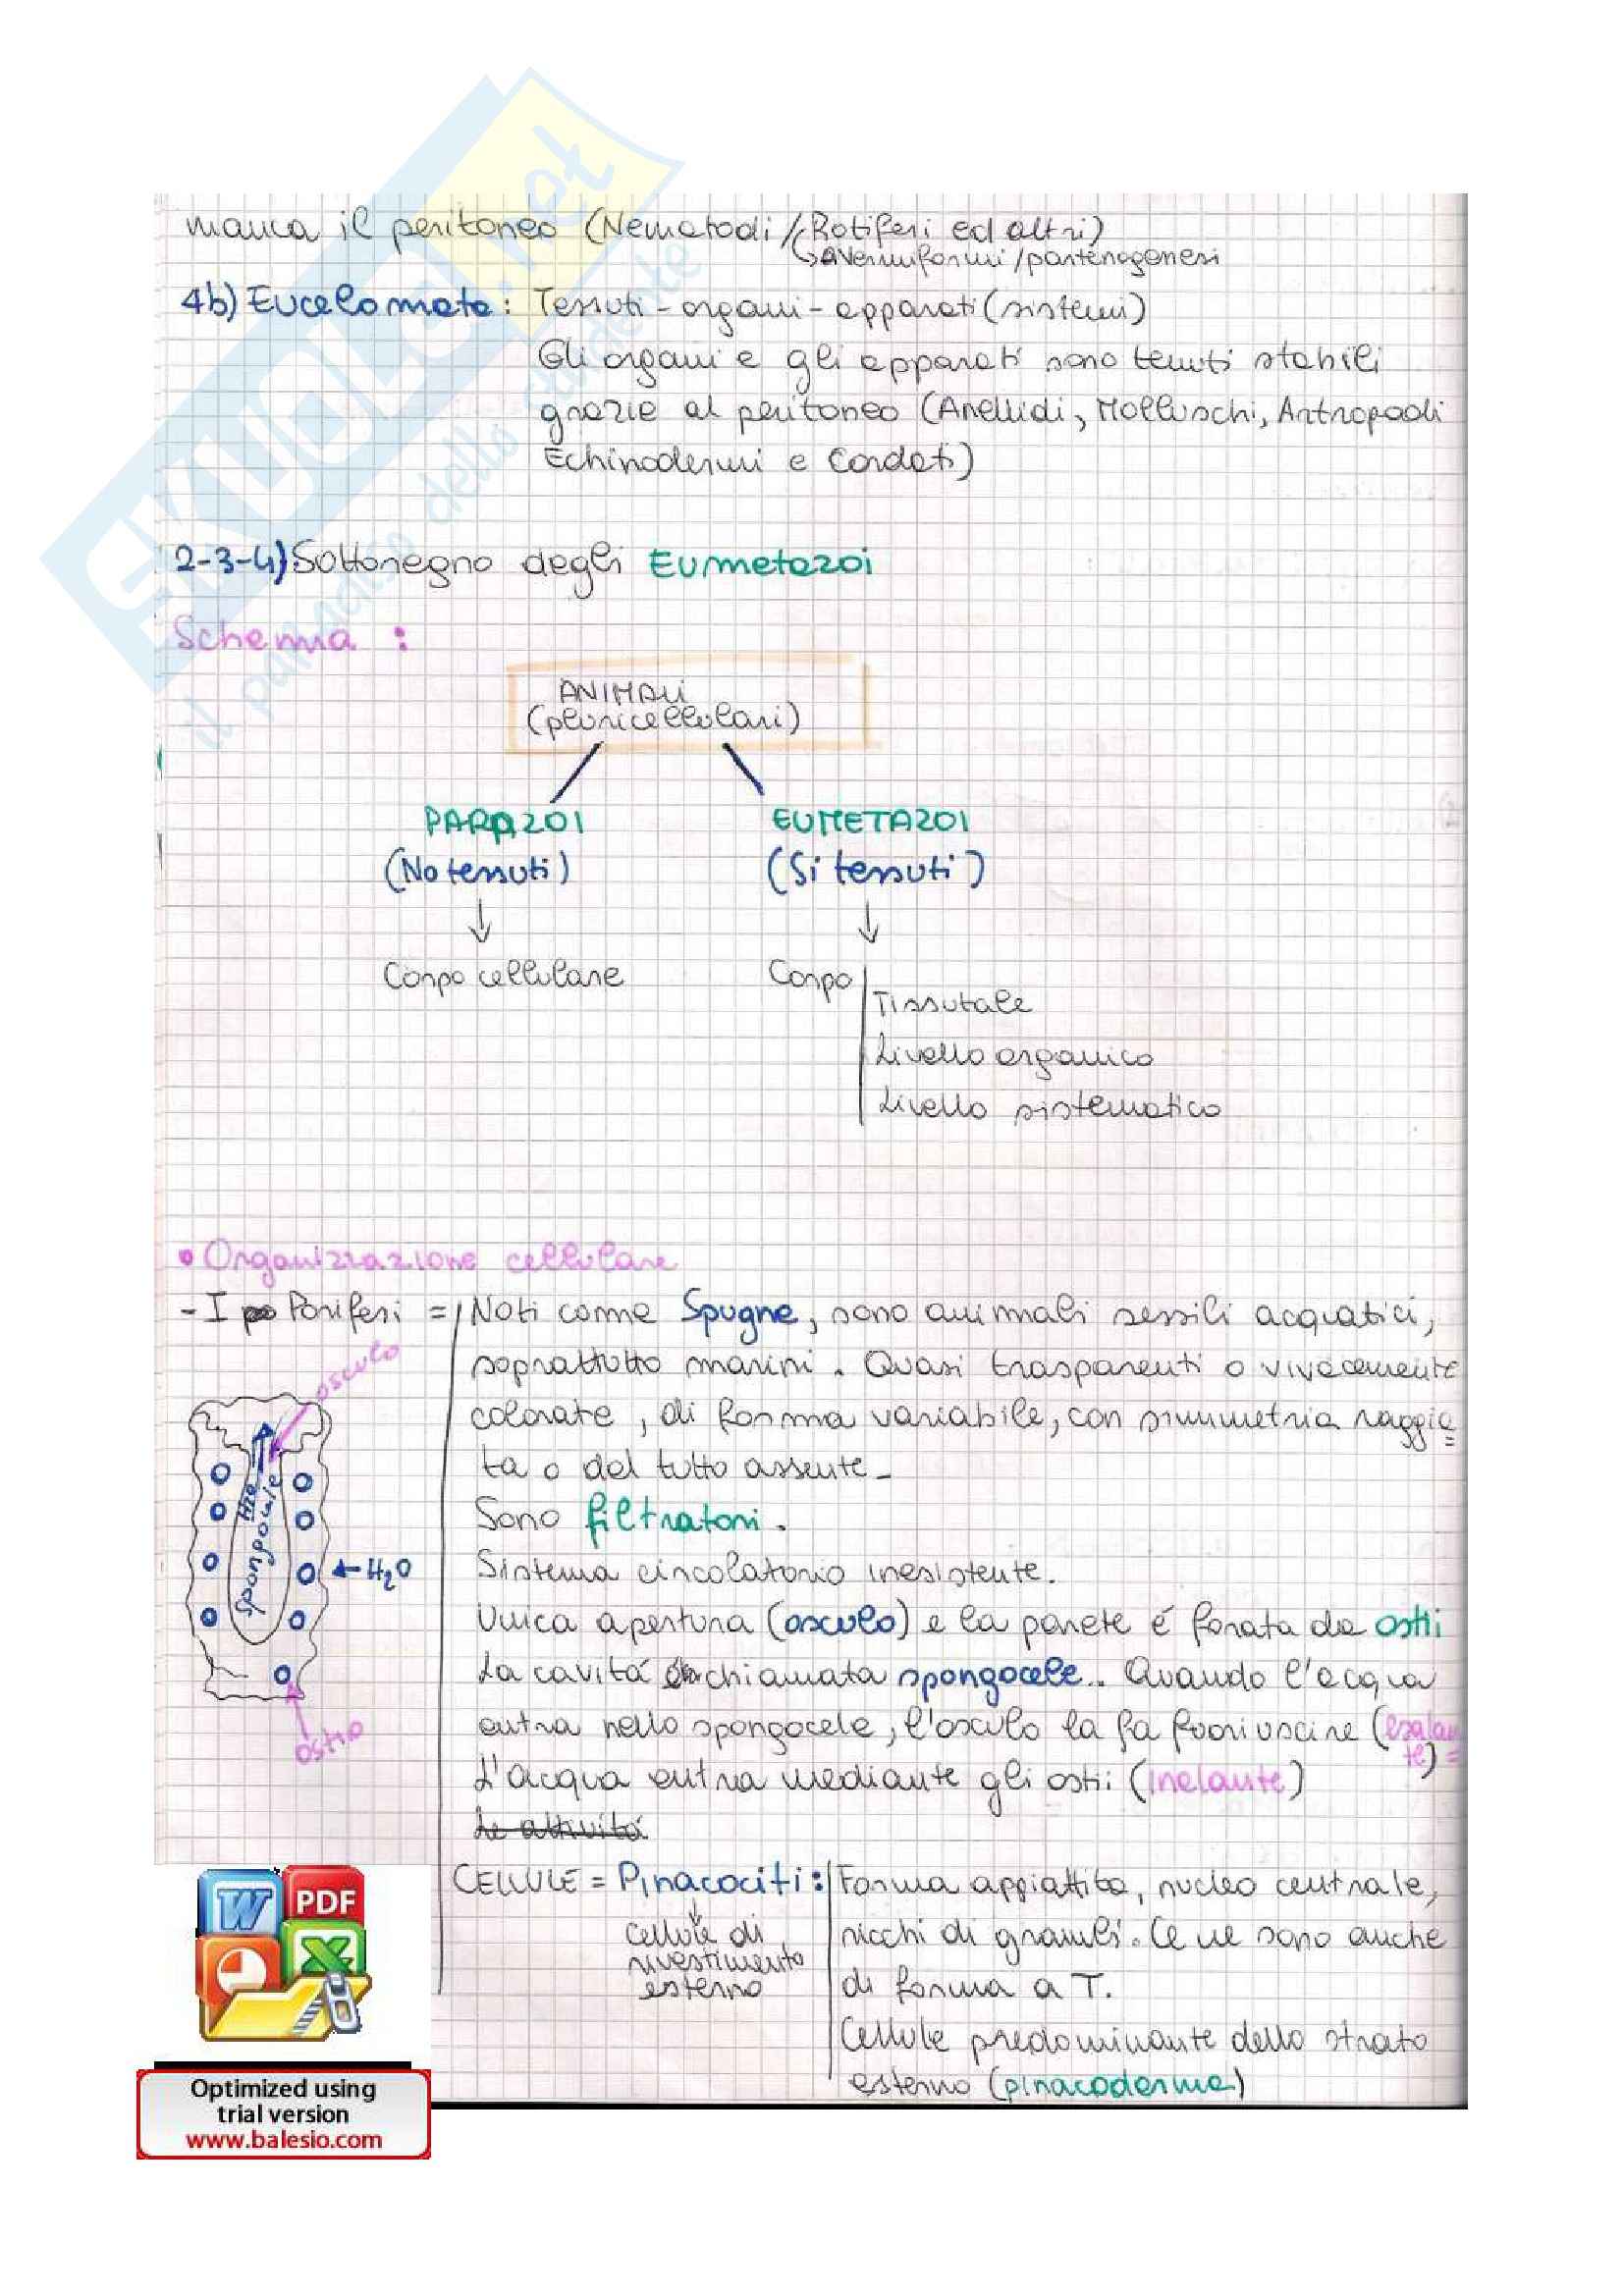 manca il peritoneo (Nematodi / Rotiferi ed altri)
↳ Avermiformi / partenogenesi
4b) Eucelomata: Tessuti - organi - apparati (sistemi)
Gli organi e gli apparati sono tenuti stabili
grazie al peritoneo (Anellidi, Molluschi, Artropodi
Echinodermi e Cordati)
2-3-4) Sottoregno degli Eumetazoi
Schema :
ANIMALI
(pluricellulari)
PARAZOI EUMETAZOI
(No tessuti) (Si tessuti)
Corpo cellulare Corpo
Tissutale
Livello organico
Livello sistematico
• Organizzazione cellulare
- I Poriferi = Noti come Spugne, sono animali sessili acquatici,
osculo
soprattutto marini. Quasi trasparenti o vivacemente
colorate, di forma variabile, con simmetria raggia=
ta o del tutto assente_
Sono filtratori.
spongocele
Sistema circolatorio inesistente.
← H2O
Unica apertura (osculo) e la parete é forata da ostii
La cavità chiamata spongocele.. Quando l'acqua
entra nello spongocele, l'osculo la fa fuoriuscire (esalan
te) =
ostio
L'acqua entra mediante gli ostii (inelante)
Le attività
CELLULE = Pinacociti: Forma appiattita, nucleo centrale,
cellule di
rivestimento
esterno
ricchi di granuli. Ce ne sono anche
di forma a T.
Cellule predominante dello strato
esterno (pinacoderma)
SKUOLA.net
il paradiso dello studente
W PDF
X
Optimized using
trial version
www.balesio.com